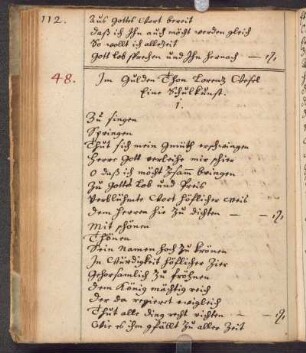 112.
Aus Gottes Wort bereit
daß ich Ihn auch möcht werden gleich
So wollt ich allezeit
Gott lob sprechen und Ihn hernach
48.
Im Gulden Thon Lorentz Wesel
Eine Schulkunst.
1.
Zu singen
Springen
Thut sich mein Gmüth erschwingen
Herre Gott verleihe mir schier
O daß ich möcht zsam̅ bringen
Zu Gottes Lob und Preis
Verblühmte Wort höflicher weis
dem Herren hie zu dichten
Mit schönen
Thönen
Sein Namen hoch zu krönen
In Würdigkeit höflicher Zier
Gehorsamlich zu fröhnen
dem König mächtig reich
der da regieret ewigleich
Thut alle ding recht richten
Wie es ihm gefällt zu aller Zeit